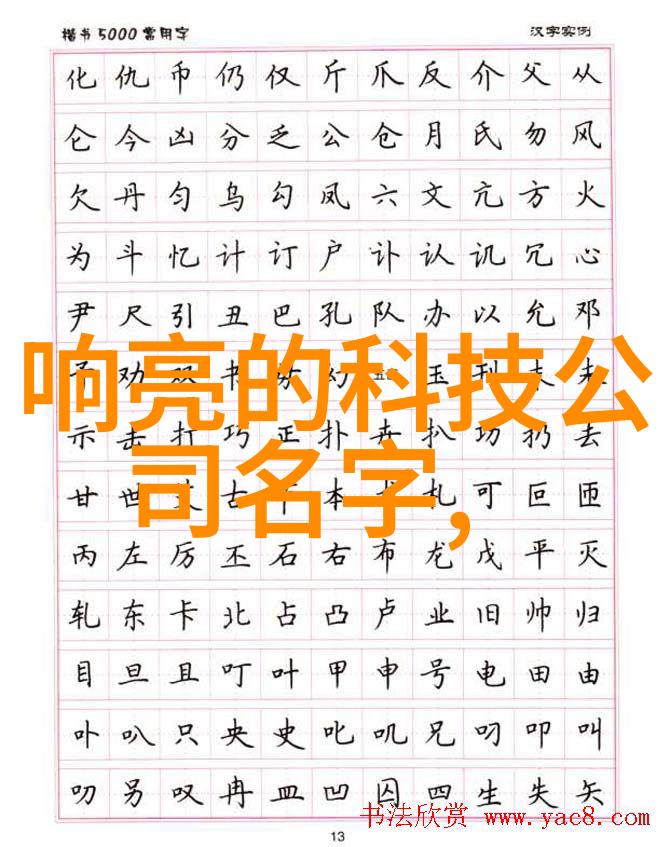 楷书5000常用字 汉字实例
化仇币仍仅斤爪反介父从
仑今凶分乏公仓月氏勿风
欠丹匀乌勾凤六文亢方火
为斗忆计订户讣认讥冗心
尹尺引丑巴孔队办以允邓
劝双书幻玉刊末未
响亮的科技公司名字,
示击打巧正扑卉扒功扔去
甘世古本札可叵匝
丙左厉丕石右布龙戊平灭
轧东卡北占凸卢业旧帅归
目旦且叮叶甲申号电田由
卟叭只央史叱叽兄叼叩叫
叨另叹冉皿凹囚四生失矢
书法欣赏 www.yac8.com
13